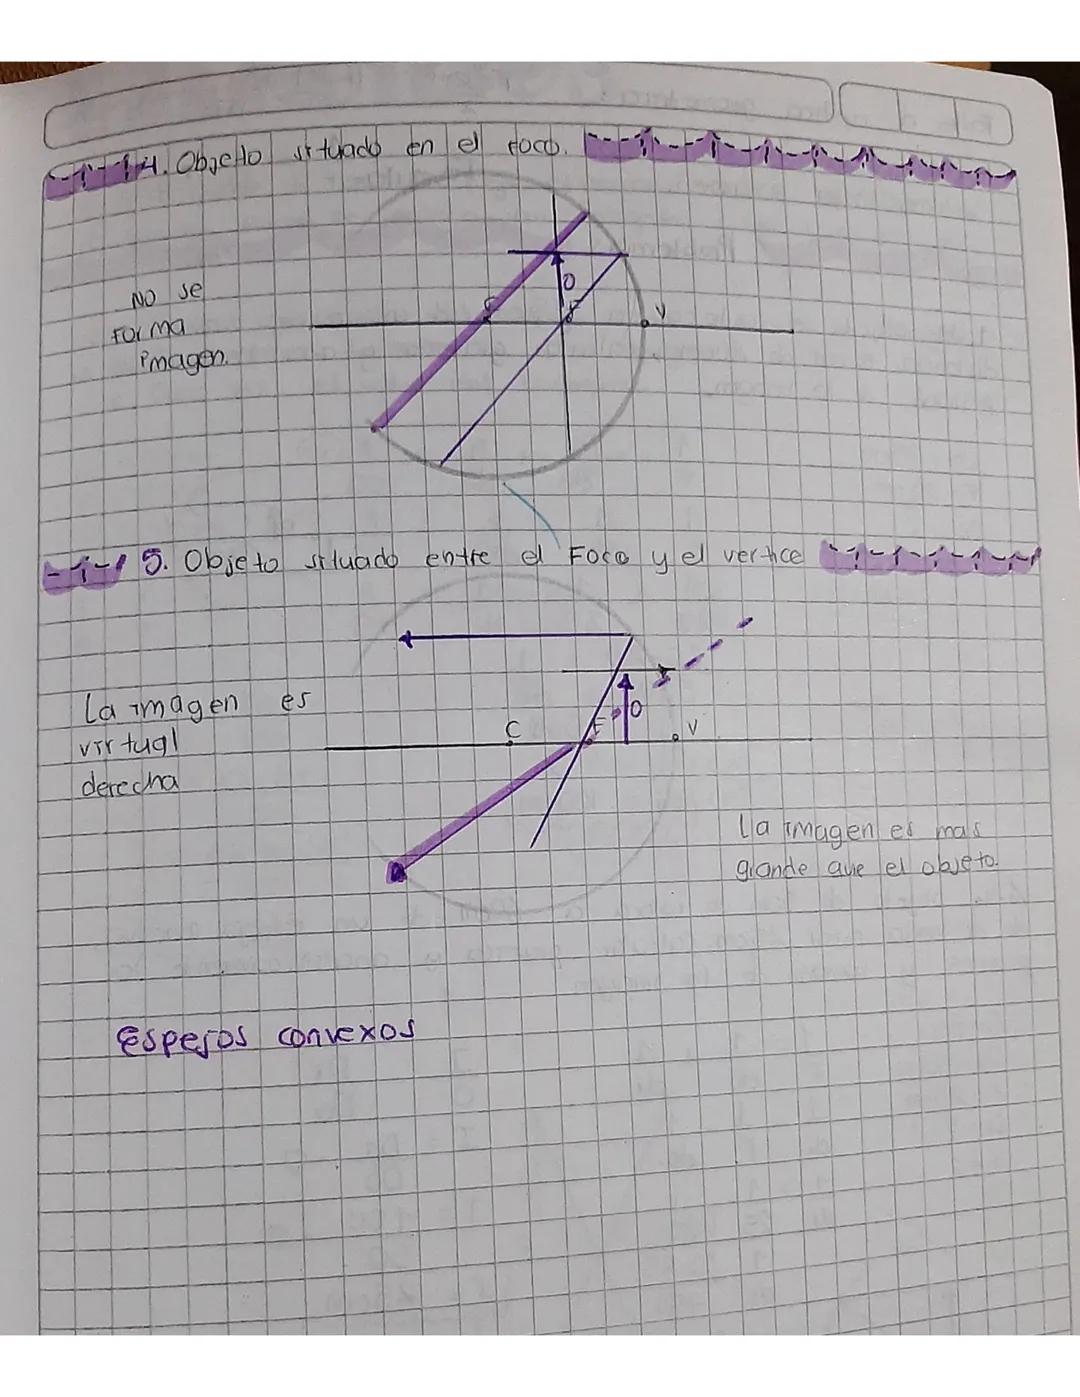 4. Objeto situado en el foco.
No se
forma
imagen.
C
O
F
V
5. Objeto situado entre el Foco y el vertice
La imagen es
virtual
derecha
C
F
O
V
La imagen es mas
grande que el objeto.
Espejos convexos